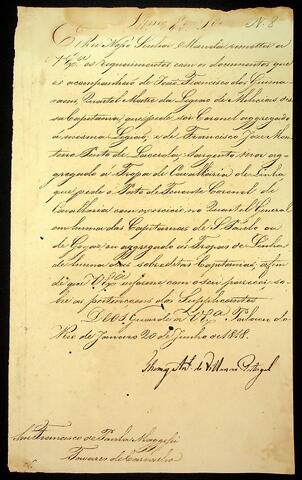 N. 8
El Rei Nosso Senhor Manda remetter a
V Ex.ª os requerimentos com os documentos que
os acompanhão de Joze Francisco dos Guima
raens, Quartel Mestre da Legião de Milicias des
sa Capitania, que pede ser Coronel aggregado
á mesma Legião; e de Francisco Joze Mon
teiro Pinto de Lacerda, Sargento Mor ag
gregado á Tropa de Cavallaria de Linha
que pede o Posto de Tenente Coronel de
Cavallaria com exercicio no Quartel General
em huma das Capitanias de S. Paulo ou
de Goyaz ou aggregado ás Tropas de Linha
de huma das sobreditas Capitanias, afim
de que V Ex.ª informe com o seu parecer so
bre as pertençoens dos Supplicantes.
Deos Guarde a V. Ex.ª Palacio do
Rio de Janeiro 20 de Junho de 1818.
Thomaz Ant.º de Villanova Portugal
Snr. Francisco de Paula Maggessi
Tavares de Carvalho